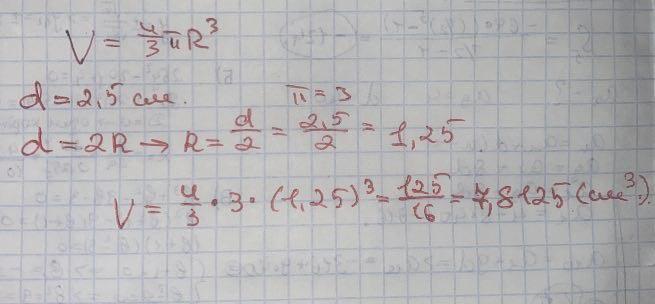 V = 4/3 π R³
d = 2,5 см. π = 3
d = 2R → R = d/2 = 2,5/2 = 1,25
V = 4/3 · 3 · (1,25)³ = 125/16 = 7,8125 (см³).